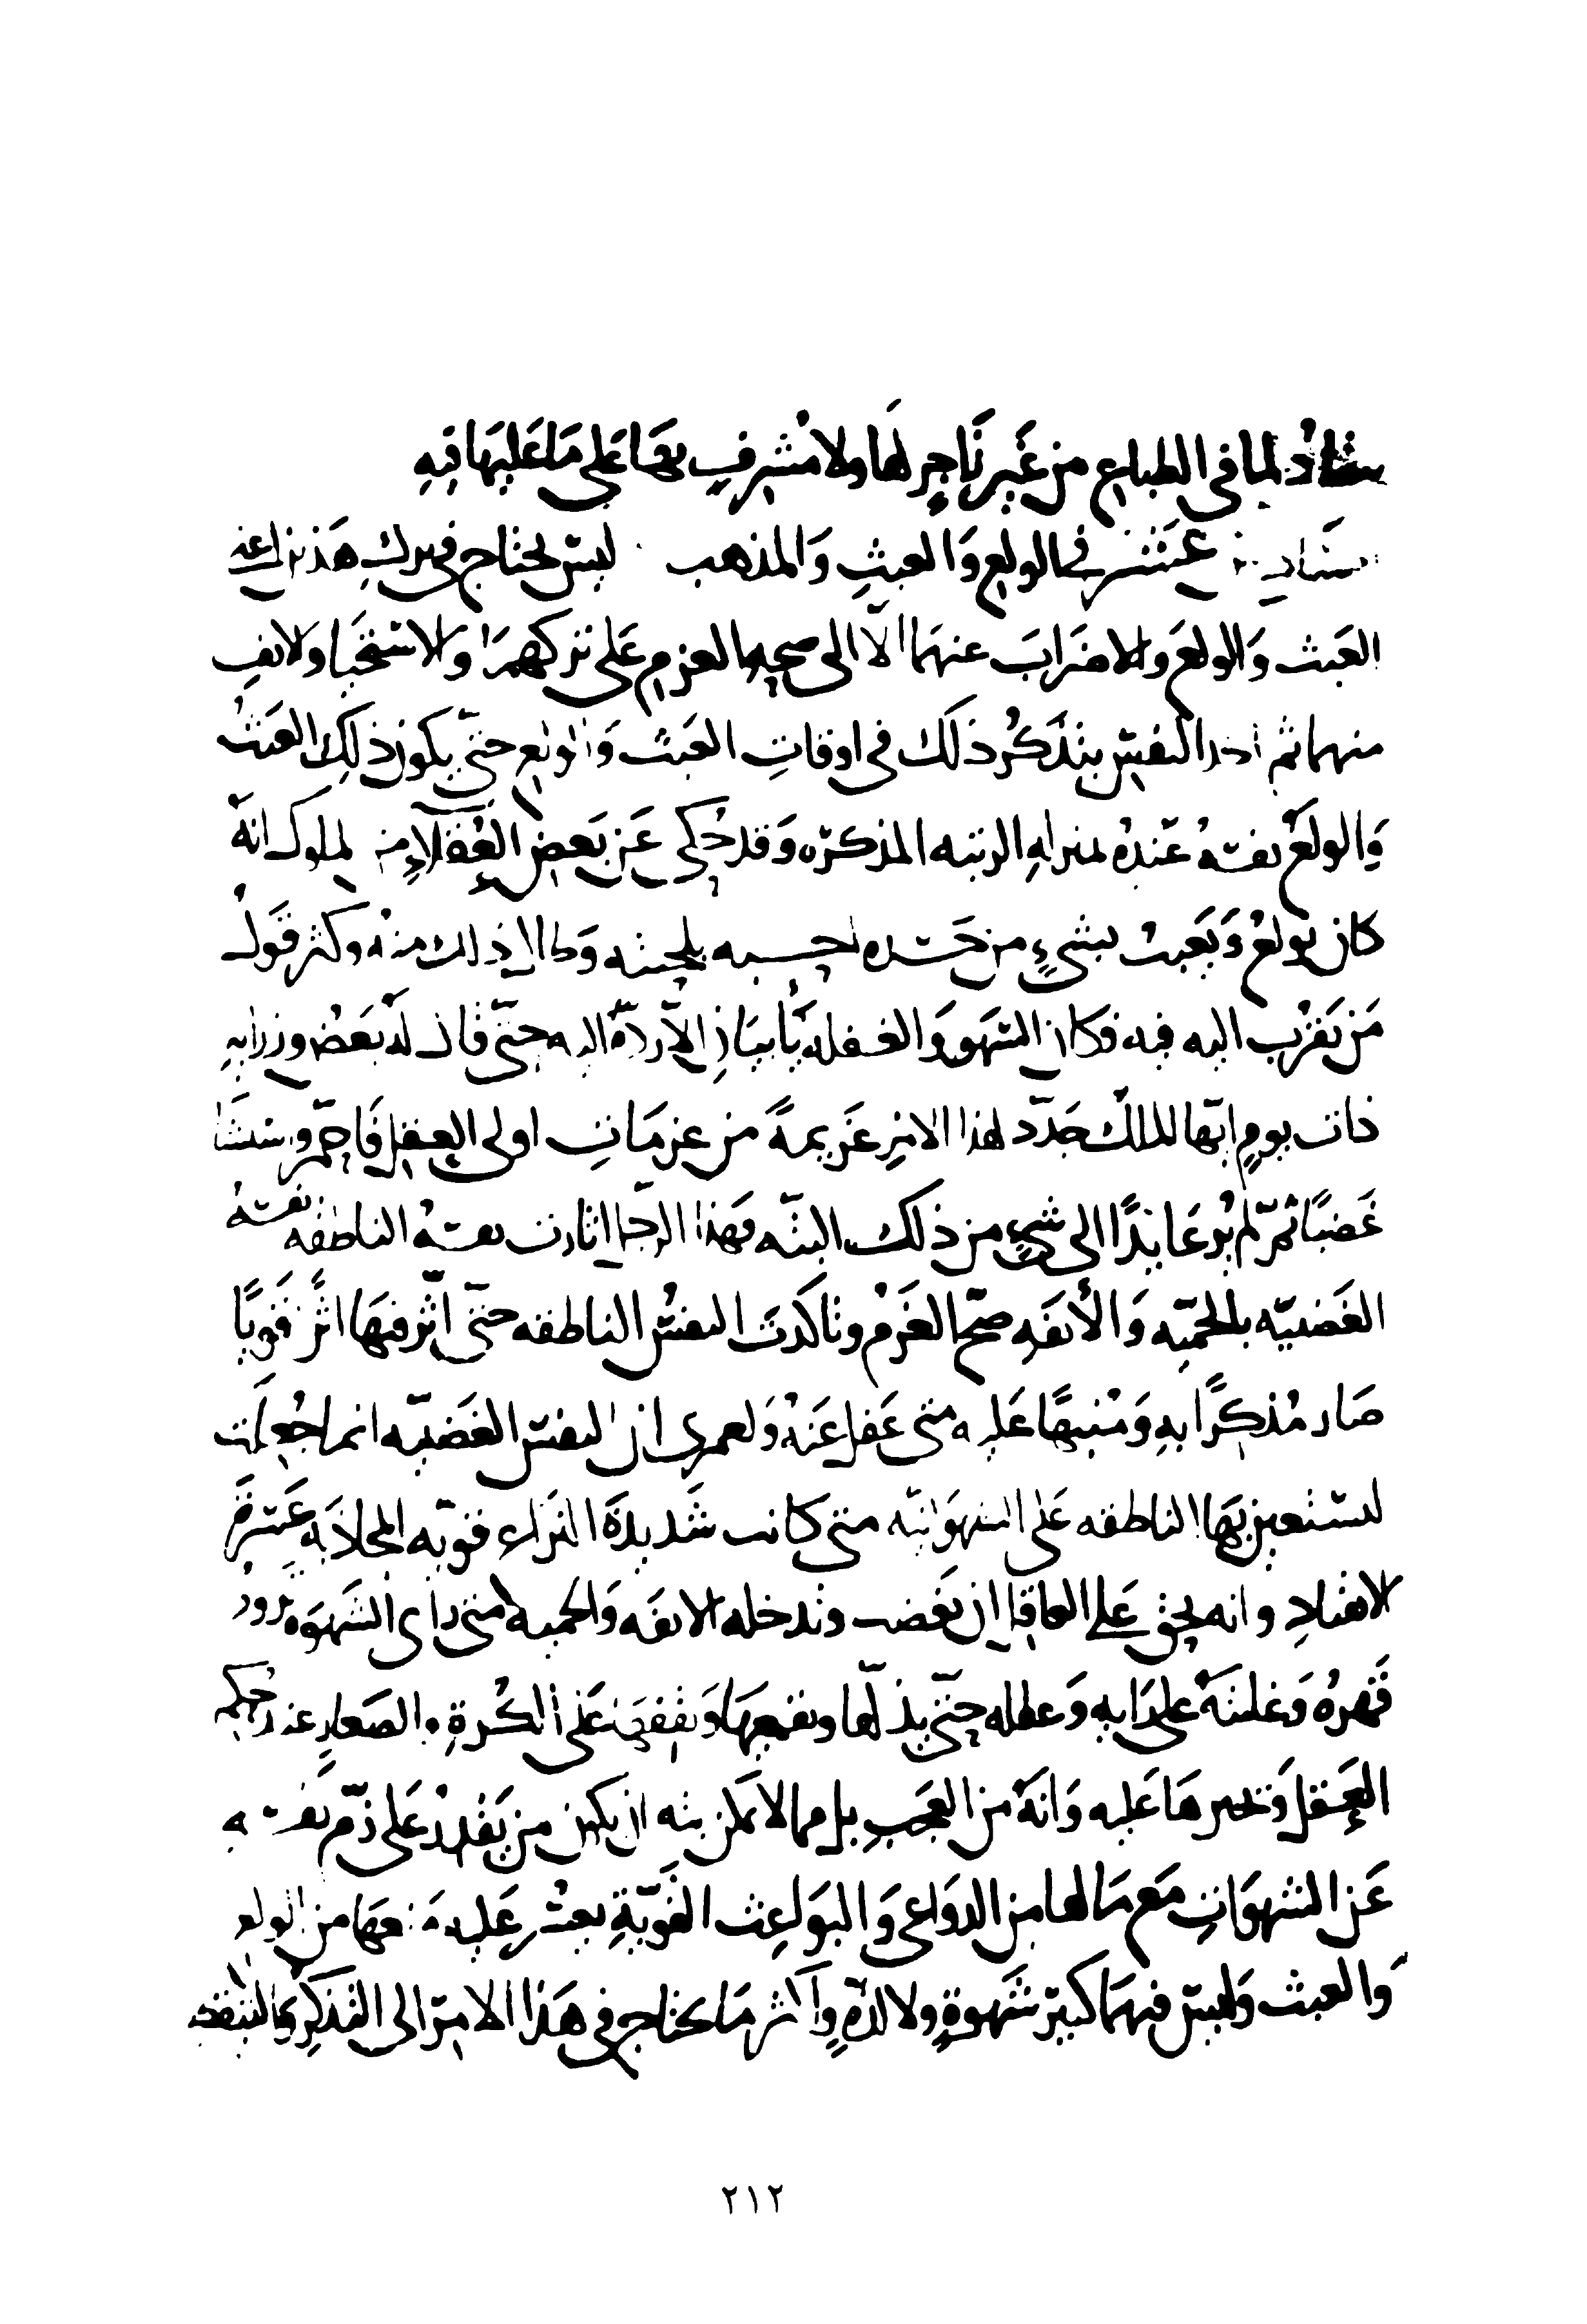 لما في الطباع من غير زاجر لها ولا مشرف بها على ما عليها فيه
عشر في الولع والعبث والمذهب ليس يحتاج في ترك هذين اعني
العبث والولع والاضراب عنهما الا الى صحه العزم على تركهما والاستحيا والانف
منهما ثم اخذ النفس بتذكر ذلك في اوقات العبث والولع حتى يكون ذلك العبث
والولع نفسه عنده بمنزله الرتيمه المذكره وقد حكي عن بعض العقلاء من الملوك انه
كان يولع ويعبث بشيء من جسده احسبه بلحيته وطال ذلك منه وكثر قول
من يقرب اليه فيه فكان السهو والغفله يابيان الا رده اليه حتى قال له بعض وزرايه
ذات يوم ايها الملك جدد لهذا الامر عزيمة من عزمات اولي العقل فاحمر واستشاط
غضبا ثم لم ير عايدا الى شيء من ذلك البته فهذا الرجل اثارت نفسه الناطقه نفسه
الغضبيه بالحميه والانفه صح العزم وتاكد في النفس الناطقه حتى اثر فيها اثرا قويا
صار مذكرا به ومنبها عليه متى غفل عنه ولعمري ان النفس الغضبيه انما جعلت
لتستعين بها الناطقه على الشهوانيه متى كانت شديدة النزاء قويه المجاذبه عسرة
الانقياد وانه يحق على العاقل ان يغضب وتدخله الانفه والحميه متى راى الشهوه تروم
قهره وغلبته على رايه وعقله حتى يذلها ويقمعها ويقفها على الكره والصغار عند حكم
العقل وتجبرها عليه وانه من العجب بل مما لا يمكن بته ان يكون من يقدر على ذم نفسه
عن الشهوات مع ما لها من الدواعي والبواعث القويه يعسر عليه منعها من الولع
والعبث وليس فيهما كبير شهوة ولا لذه واكثر ما يحتاج في هذا الامر الى التذكر والتيقظ
٢١٢